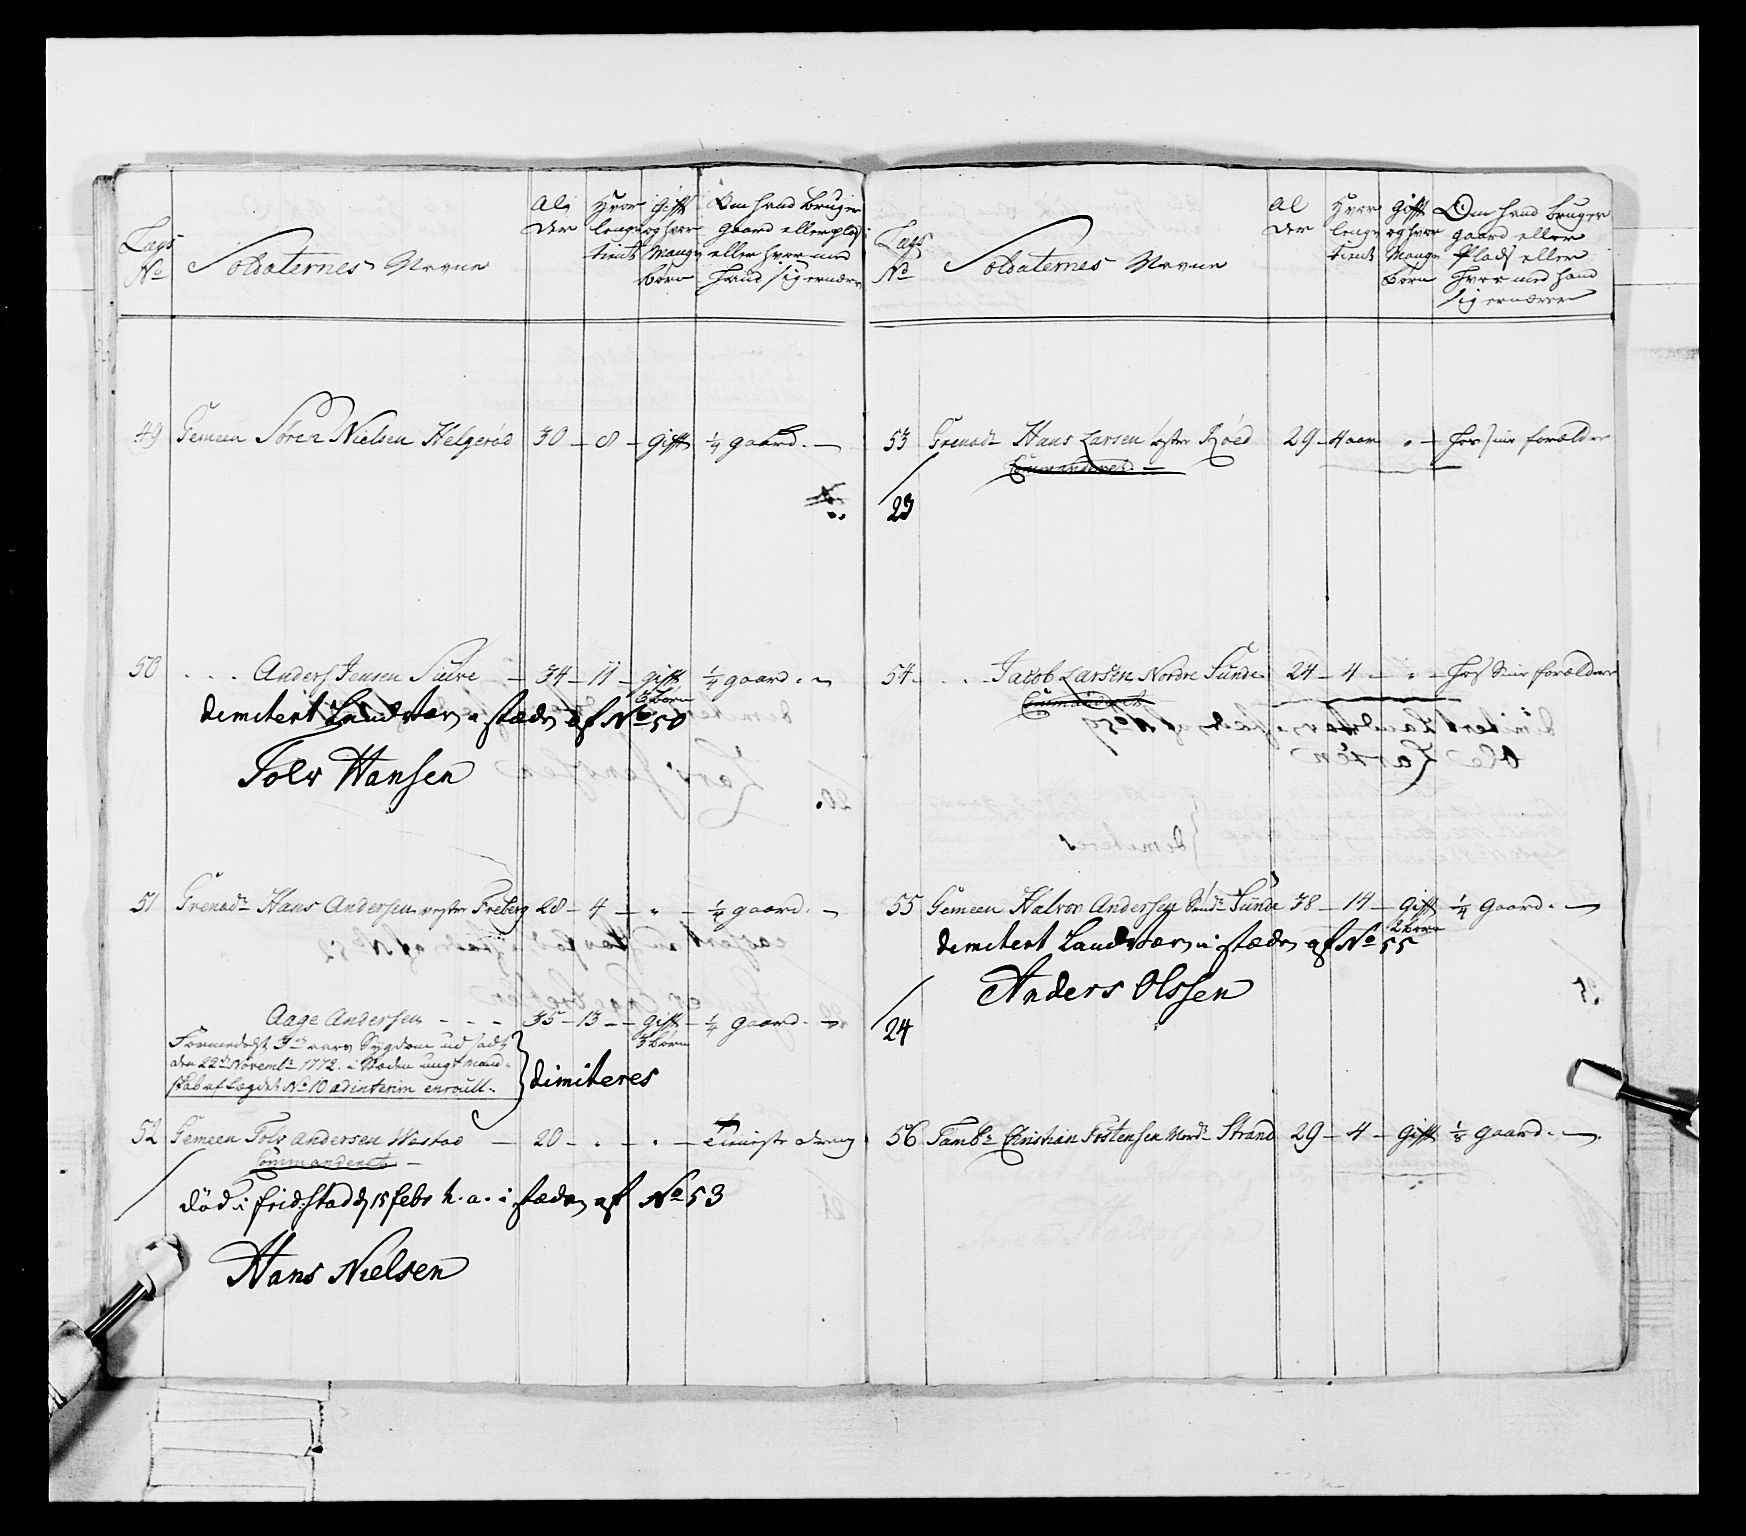 Lægs No
Soldaternes Navne
Al der
Hvor lenge tient
Gifft og hvor Mange börn
Om hand bruger gaard eller plads eller hvor med hand sig ernærer
49 Gemeen Sören Nielsen Helgeröd 30 - 8 - gifft 1/4 gaard. -
50 . . . Anders Jensen - 34 - 11 - gifft 1/4 gaard. -
3 börn
dimitert Landværn i stæden af No 50
Tolv Hansen
51 Grenadr Hans Andersen vestre Freberg 28 - 4 - " - 1/4 gaard. -
Aage Andersen - - - 35 - 13 - gifft - 1/4 gaard. -
3 börn
Formedelst Sygdom ud sadt
den 22de Novembr 1772. i Steden ungt mand-
skab af Lægdet No 10 ad interim enroull.
dimiteres
52 Gemeen Tolv Andersen Wastad - 20 - " - " - tieniste dreng
Commanderet -
död i fridrstad d 15 febr h. a. i stæden af No 53
Hans Nielsen
Lægs No
Soldaternes Navne
Al der
Hvor lenge tient
Gifft og hvor Mange börn
Om hand bruger gaard eller Plads eller hvor med hand sig ernærer
53 Grenadr Hans Larsen östre Röed 29 - 4 aar " - hos sine forældre
Commanderet -
23
54 . . . Jacob Larsen Nordre Sunde 24 - 4 - " - hos sine forældre
Commanderet
55 Gemeen Halvor Andersen Söndr Sunde 38 - 14 - gifft 1/4 gaard. -
2 börn
dimitert Landværn i stæden af No 55
Anders Olssen
24
56 Tambr Christian Tostensen Nordr Strand 29 - 4 - gifft 1/8 gaard. -